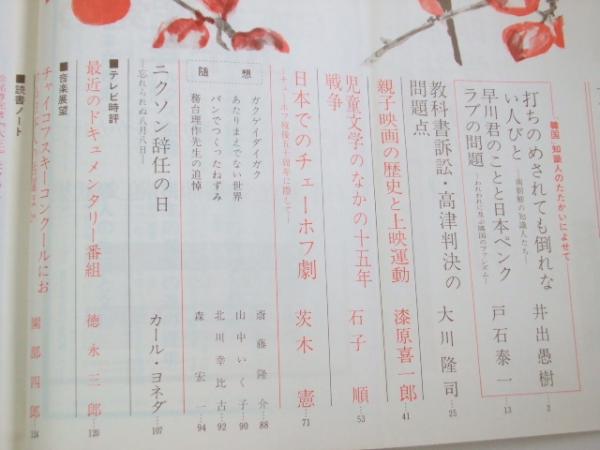 韓国・知識人のたたかいによせて
打ちのめされても倒れな
い人びと
―南朝鮮の知識人たち―
井出愚樹…2
早川君のことと日本ペンク
ラブの問題
―われわれに及ぶ隣国のファシズム―
戸石泰一…13
教科書訴訟・高津判決の
問題点
大川隆司…25
親子映画の歴史と上映運動
漆原喜一郎…41
児童文学のなかの十五年
戦争
石子順…53
日本でのチェーホフ劇
―チェーホフ歿後七十周年に際して―
茨木憲…71
随想
ガクゲイダイガク
斎藤隆介…88
あたりまえでない世界
山中いく子…90
パンでつくったねずみ
北川幸比古…92
務台理作先生の追悼
森宏一…94
ニクソン辞任の日
―忘れられぬ八月八日―
カール・ヨネダ…107
■テレビ時評
最近のドキュメンタリー番組
徳永三郎…120
■音楽展望
チャイコフスキーコンクールにお
園部四郎…124
■読書ノート